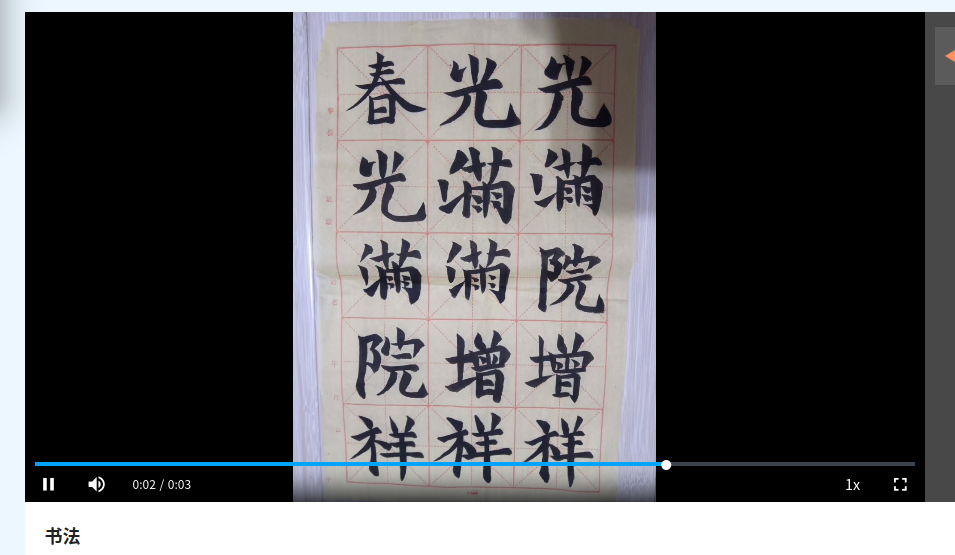 春光光
光满满
满满院
院增增
祥祥祥
0:02 / 0:03
1x
书法